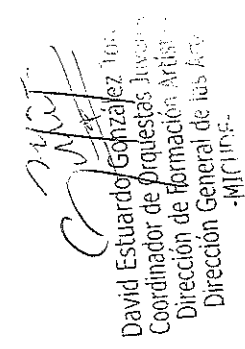 David Estuardo González
Coordinador de Orquestas
Dirección de Formación
Dirección General de las
-MICUDE-